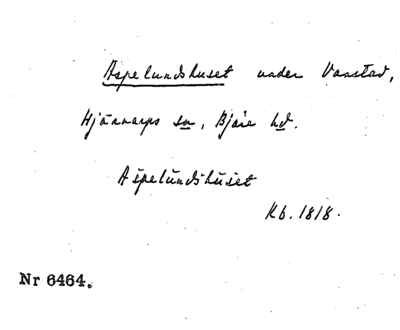 Aspelundshuset under Vanstad,
Hjärnarps sn, Bjäre hd.
Aspelundshuset
Kb. 1818.
Nr 6464.